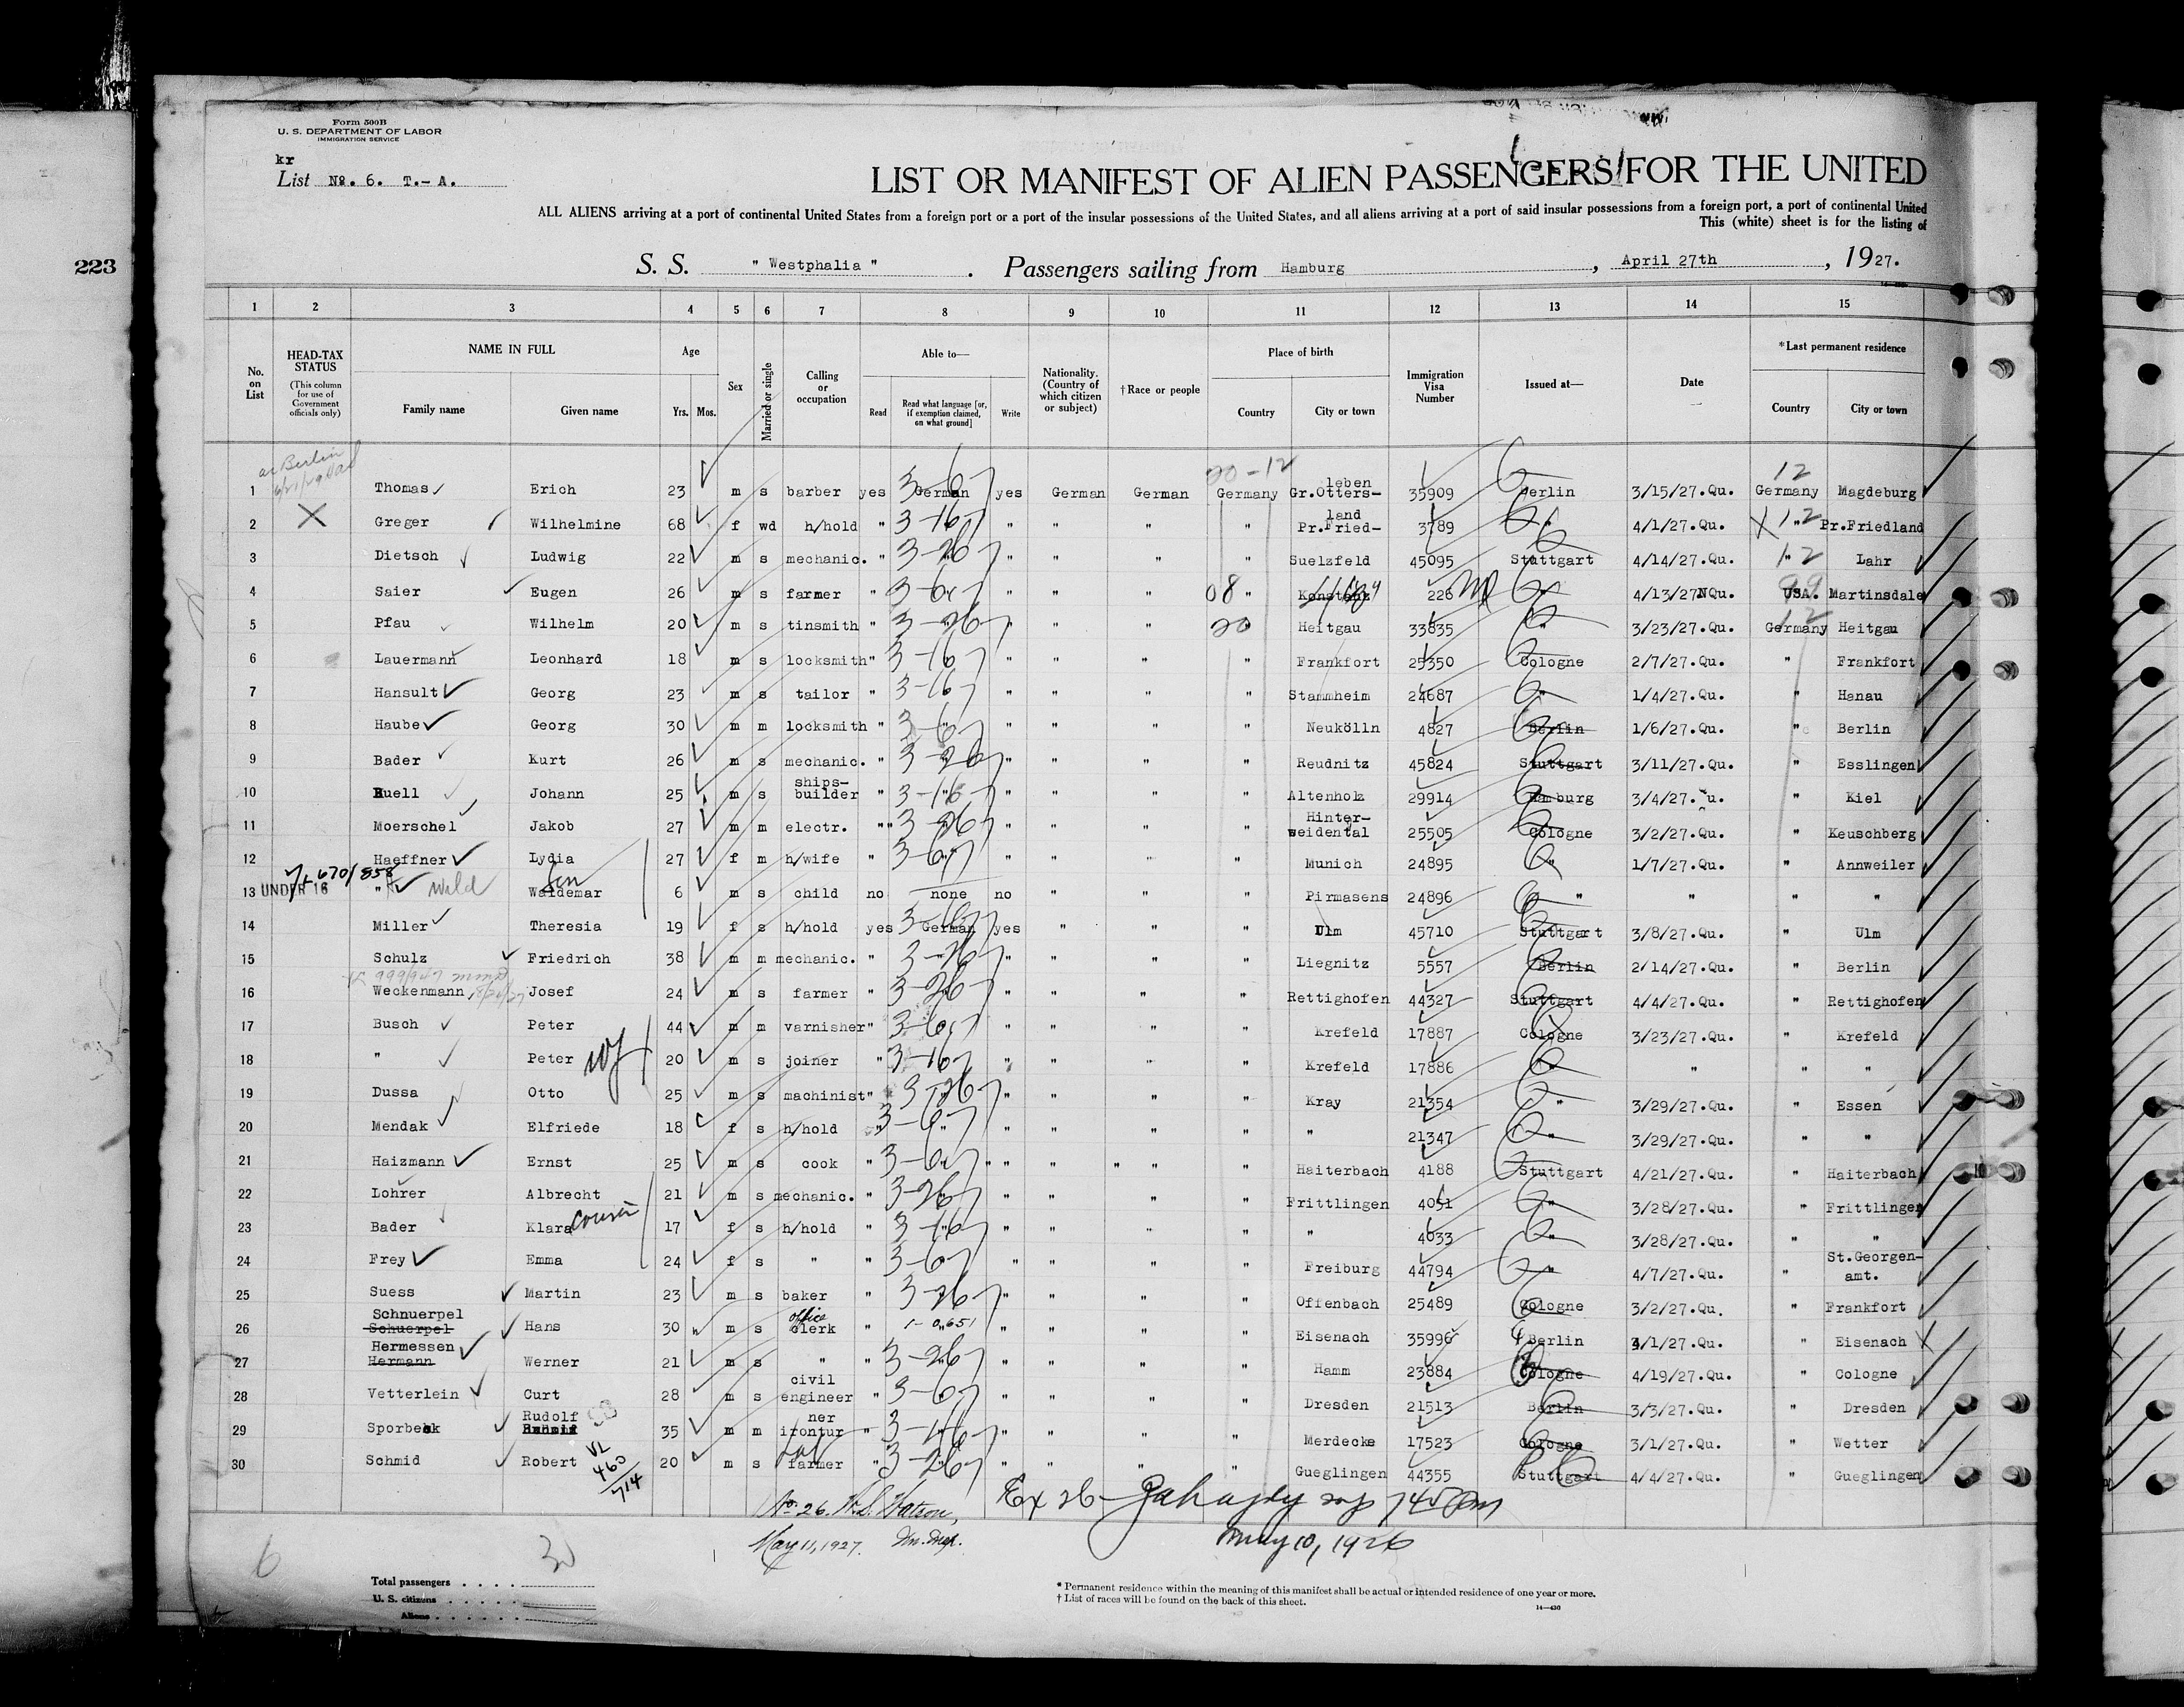 Form 500B
U. S. DEPARTMENT OF LABOR
IMMIGRATION SERVICE
kr
List No. 6. T.- A.
LIST OR MANIFEST OF ALIEN PASSENGERS FOR THE UNITED
ALL ALIENS arriving at a port of continental United States from a foreign port or a port of the insular possessions of the United States, and all aliens arriving at a port of said insular possessions from a foreign port, a port of continental United
This (white) sheet is for the listing of
223
S. S. " Westphalia " . Passengers sailing from Hamburg , April 27th , 1927.
1 2 3 4 5 6 7 8 9 10 11 12 13 14 15
No. on List HEAD-TAX STATUS (This column for use of Government officials only) NAME IN FULL Family name Given name Age Yrs. Mos. Sex Married or single Calling or occupation Able to— Read Read what language [or, if exemption claimed, on what ground] Write Nationality. (Country of which citizen or subject) †Race or people Place of birth Country City or town Immigration Visa Number Issued at— Date *Last permanent residence Country City or town
20-12 12
1 Thomas Erich 23 m s barber yes German yes German German Germany Gr.Otters-leben 35909 Berlin 3/15/27.Qu. Germany Magdeburg
2 X Greger Wilhelmine 68 f wd h/hold " 3-16 " " " " Pr.Fried-land 3789 " 4/1/27.Qu. X " 12 Pr.Friedland
3 Dietsch Ludwig 22 m s mechanic. " 3-26 " " " " Suelzfeld 45095 Stuttgart 4/14/27.Qu. " 12 Lahr
4 Saier Eugen 26 m s farmer " 3-6 " " " 08 " Konstanz 226 " 4/13/27NQu. USA. Martinsdale
5 Pfau Wilhelm 20 m s tinsmith " 3-26 " " " 20 Heitgau 33835 " 3/23/27.Qu. Germany Heitgau
6 Lauermann Leonhard 18 m s locksmith " 3-16 " " " " Frankfort 25350 Cologne 2/7/27.Qu. " Frankfort
7 Hansult Georg 23 m s tailor " 3-16 " " " " Stammheim 24687 " 1/4/27.Qu. " Hanau
8 Haube Georg 30 m m locksmith " 3-6 " " " " Neukölln 4827 Berlin 1/6/27.Qu. " Berlin
9 Bader Kurt 26 m s mechanic. " 3-26 " " " " Reudnitz 45824 Stuttgart 3/11/27.Qu. " Esslingen
10 Ruell Johann 25 m s ships-builder " 3-16 " " " " Altenholz 29914 Hamburg 3/4/27. u. " Kiel
11 Moerschel Jakob 27 m m electr. " " 3-26 " " " " Hinter-weidental 25505 Cologne 3/2/27.Qu. " Keuschberg
12 Haeffner Lydia 27 f m h/wife " 3-6 " " " " Munich 24895 " 1/7/27.Qu. " Annweiler
13 UNDER 16 " Wild Waldemar son 6 m s child no none no " " " Pirmasens 24896 " " " "
14 Miller Theresia 19 f s h/hold yes German yes " " " Ulm 45710 Stuttgart 3/8/27.Qu. " Ulm
15 Schulz Friedrich 38 m m mechanic. " 3-26 " " " " Liegnitz 5557 Berlin 2/14/27.Qu. " Berlin
16 Weckenmann Josef 24 m s farmer " 3-26 " " " " Rettighofen 44327 Stuttgart 4/4/27.Qu. " Rettighofen
17 Busch Peter 44 m m varnisher " 3-6 " " " " Krefeld 17887 Cologne 3/23/27.Qu. " Krefeld
18 " Peter 20 m s joiner " 3-16 " " " " Krefeld 17886 " " " "
19 Dussa Otto 25 m s machinist " 3-26 " " " " Kray 21354 " 3/29/27.Qu. " Essen
20 Mendak Elfriede 18 f s h/hold " 3-6 " " " " " 21347 " 3/29/27.Qu. " "
21 Haizmann Ernst 25 m s cook " 3-6 " " " " " " Haiterbach 4188 Stuttgart 4/21/27.Qu. " Haiterbach
22 Lohrer Albrecht 21 m s mechanic. " 3-26 " " " " Frittlingen 4051 " 3/28/27.Qu. " Frittlingen
23 Bader Klara cousin 17 f s h/hold " 3-16 " " " " " 4033 " 3/28/27.Qu. " "
24 Frey Emma 24 f s " " 3-6 " " " " Freiburg 44794 " 4/7/27.Qu. " St.Georgen-amt.
25 Suess Martin 23 m s baker " 3-26 " " " " Offenbach 25489 Cologne 3/2/27.Qu. " Frankfort
26 Schnuerpel Schuerpel Hans 30 m s office clerk " " " " " Eisenach 35996 Berlin 3/1/27.Qu. " Eisenach X
27 Hermessen Hermann Werner 21 m s " " 3-26 " " " " Hamm 23884 Cologne 4/19/27.Qu. " Cologne
28 Vetterlein Curt 28 m s civil engineer " 3-6 " " " " Dresden 21513 Berlin 3/3/27.Qu. " Dresden
29 Sporbeck Rudolf 35 m m irontur ner " 3-16 " " " " Merdecke 17523 Cologne 3/1/27.Qu. " Wetter
30 Schmid Robert 20 m s farmer " 3-26 " " " " Gueglingen 44355 Stuttgart 4/4/27.Qu. " Gueglingen
VL 460/714
No. 26. H.S. Watson,
May 11, 1927. Im. Insp.
May 10, 1926
6 30
Total passengers . . . .
U. S. citizens . . . . .
Aliens . . . . . .
* Permanent residence within the meaning of this manifest shall be actual or intended residence of one year or more.
† List of races will be found on the back of this sheet.
14—430